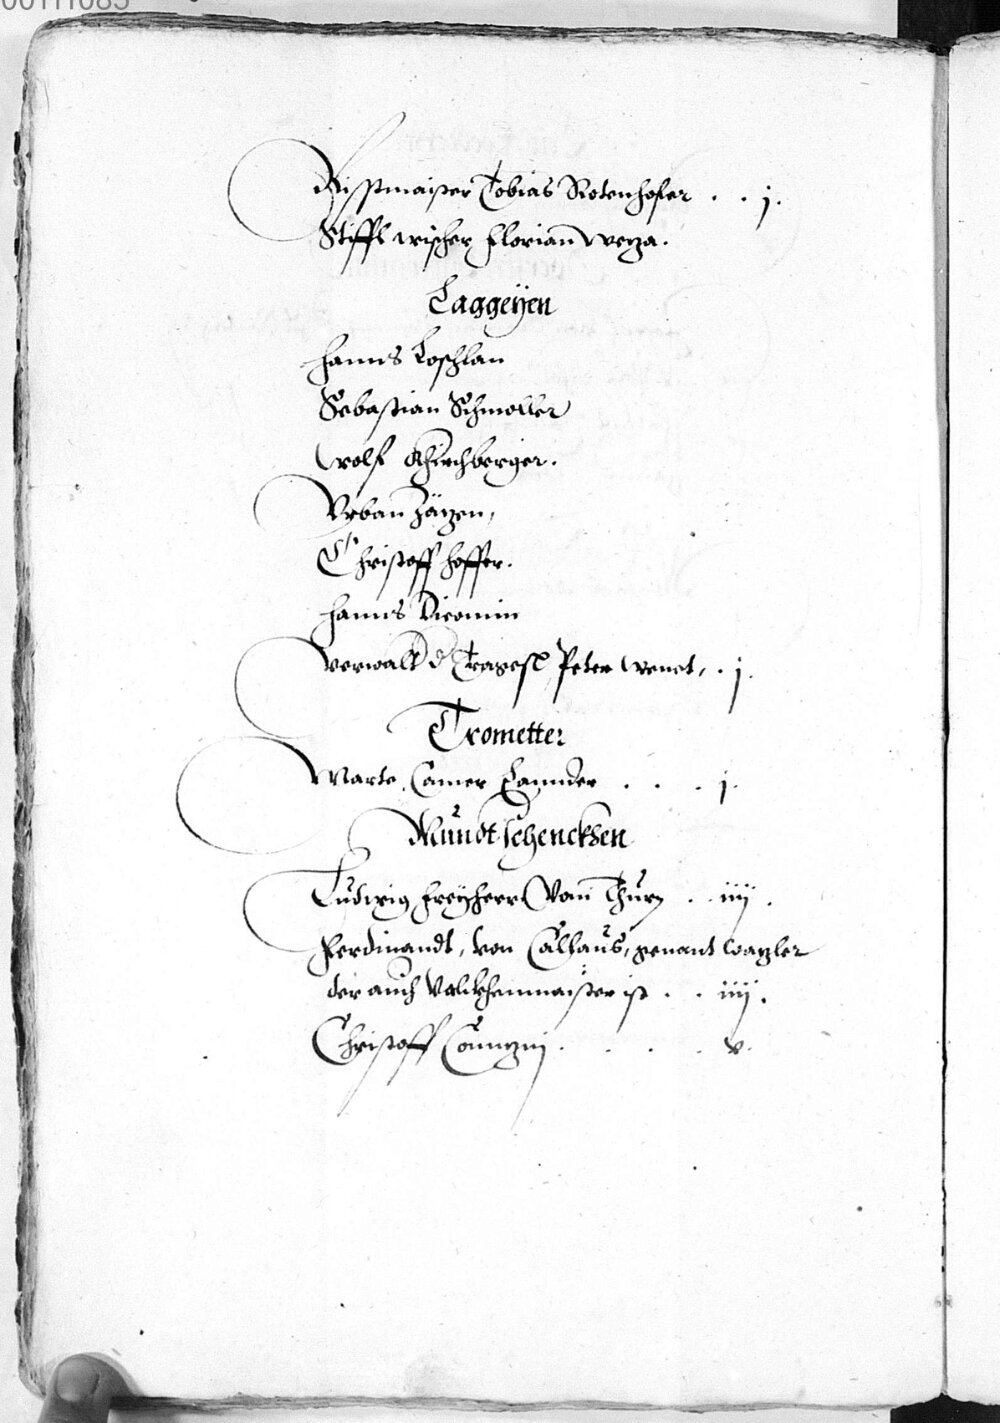 00111085
Risstmaister Tobias Rotenhofer . . j.
Stiffl wischer Florian Weyza.
Laggeyen
Hanns Loschlan
Sebastian Schmoller
Wolf Khirchberger.
Urban Zäyzen,
Christoff Hoffer.
Hanns
Verwalt d Peter Wenet, . j.
Trometter
Marto . . . j.
Mundtschenckhen
Ludwig Freyherr Vom Thurn . . iiij .
Ferdinandt, von Calhaus, genant Wayler
der auch Valckhenmaister ist . . iiij .
Christoff . . . . v.